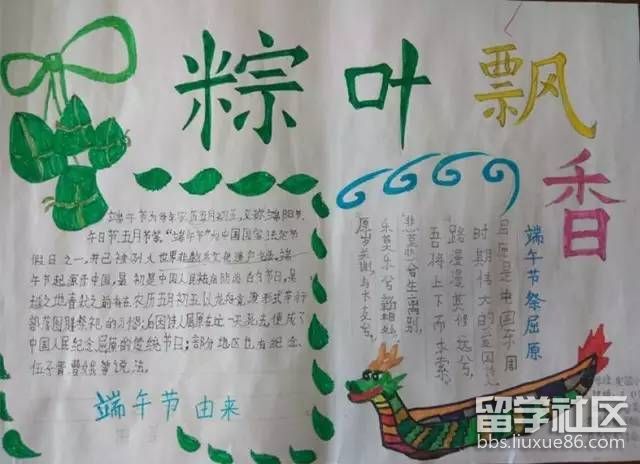 粽叶飘香
端午节为每年农历五月初五，又称端阳节、
午日节、五月节等。"端午节"为中国国家法定节
假日之一，并已被列入世界非物质文化遗产名录。端
午节起源于中国，最初是中国人民祛病防疫的节日，吴
越之地春秋之前有在农历五月初五以龙舟竞渡形式举行
部落图腾祭祀的习俗；后因诗人屈原在这一天死去，便成了
中国人民纪念屈原的传统节日；部分地区也有纪念
伍子胥、曹娥等说法。
端午节由来
端午节祭屈原
屈原是中国东周
时期伟大的爱国诗
路漫漫其修远兮，
吾将上下而求索。
悲莫悲兮生离别，
乐莫乐兮新相知。
留学社区
bbs.liuxue86.com